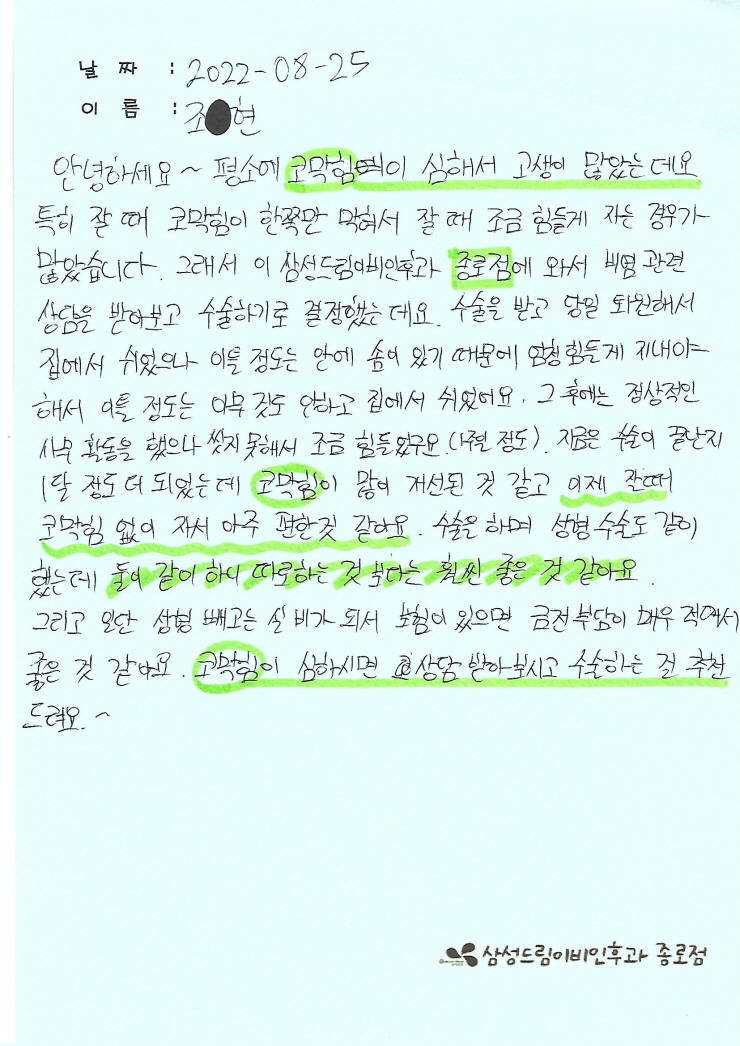 날 짜 : 2022-08-25
이 름 : 조 현
안녕하세요~ 평소에 코막힘이 심해서 고생이 많았는데요
특히 잘 때 코막힘이 한쪽만 막혀서 잘 때 조금 힘들게 자는 경우가
많았습니다. 그래서 이 삼성드림이비인후과 종로점에 와서 비염 관련
상담을 받아보고 수술하기로 결정했는데요. 수술을 받고 당일 퇴원해서
집에서 쉬었으나 이틀 정도는 안에 솜이 있기 때문에 엄청 힘들게 지내야
해서 이틀 정도는 아무 것도 안하고 집에서 쉬었어요. 그 후에는 정상적인
사무 활동을 했으나 씻지 못해서 조금 힘들었구요.(1주일 정도). 지금은 수술이 끝난지
1달 정도 더 되었는데 코막힘이 많이 개선된 것 같고 이제 잘때
코막힘 없이 자서 아주 편한것 같아요. 수술을 하며 성형 수술도 같이
했는데 둘이 같이 하니 따로하는 것 보다는 훨씬 좋은 것 같아요.
그리고 일단 성형 빼고는 실비가 되서 보험이 있으면 금전 부담이 매우 적어서
좋은 것 같아요. 코막힘이 심하시면 상담 받아보시고 수술하는 걸 추천
드려요.~
삼성드림이비인후과 종로점